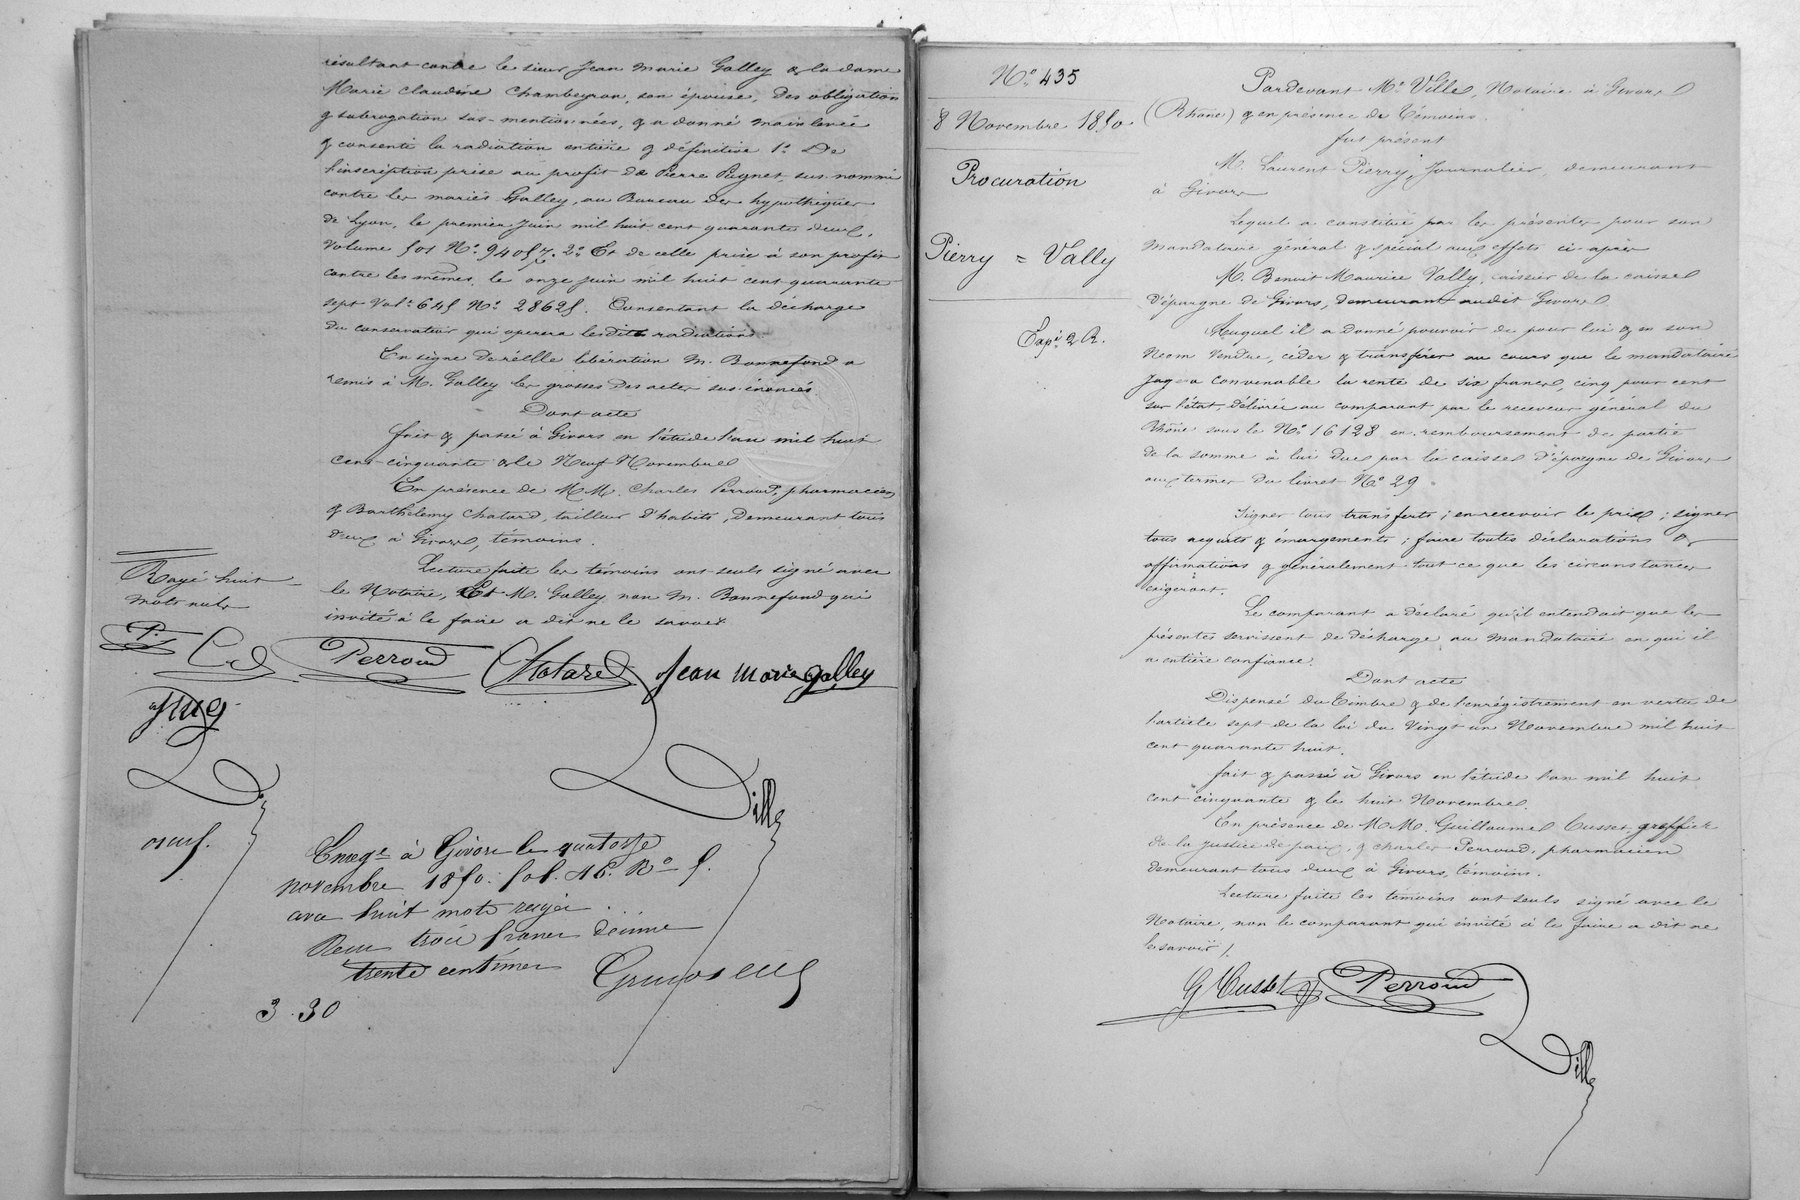 résultant contre le sieur Jean Marie Galley & la dame
Marie Claudine Chambeyron, son épouse, Des obligation
& subrogation sus-mentionnées, & a donné mainlevée
& consenti la radiation entière & définitive 1° De
l'inscription prise au profit de Pierre Pugnet, sus-nommé
contre les mariés Galley, au Bureau des hypothèques
de Lyon, le premier Juin mil huit cent quarante deux,
Volume 501 N° 94057. 2° Et de celle prise à son profit
contre les mêmes, le onze juin mil huit cent quarante
sept Vol. 645 N° 28625. Consentant la décharge
Du conservateur qui operera lesdites radiations.
En signe de réelle libération M. Bonnefond a
remis à M. Galley les grosses des actes sus-énoncés.
Dont acte
fait & passé à Givors en l'étude l'an mil huit
cent-cinquante & le Neuf Novembre
En présence de MM. Charles Perroud, pharmacien
& Barthélemy Chatard, tailleur d'habits, Demeurant tous
deux à Givors, témoins.
Lecture faite les témoins ont seuls signé avec
le Notaire, Et M. Galley non M. Bonnefond qui
invité à le faire a dit ne le savoir
Rayé huit
mots nuls
Perroud Chatard Jean Marie galley
Ville
Enreg. à Givors le quatorze
novembre 1850. fol. 16. R°
avec huit mots rayés.
Reçu trois francs décime
trente centimes
3.30
N° 435
8 Novembre 1850.
Procuration
Pierry = Vally
Exp. 2 R.
Pardevant M° Ville, Notaire à Givors
(Rhône) & en présence de Témoins.
fut présent
M. Laurent Pierry, Journalier, demeurant
à Givors
Lequel a constitué par les présentes pour son
mandataire général & spécial aux effets ci-après
M. Benoit Maurice Vally, caissier de la caisse
d'épargne de Givors, demeurant audit Givors
Auquel il a donné pouvoir de pour lui & en son
Nom Vendre, céder & transférer au cours que le mandataire
Jugera convenable la rente de six francs, cinq pour cent
sur l'état, délivrée au comparant par le receveur général du
Rhône sous le N° 16128 en remboursement de partie
de la somme à lui due par la caisse d'épargne de Givors
aux termes du livret N° 29.
Signer tous transferts; en recevoir le prix; signer
tous acquits & émargements; faire toutes déclarations &
affirmations & généralement tout ce que les circonstances
exigeront.
Le comparant a déclaré qu'il entendait que les
présentes servissent de décharge au mandataire en qui il
a entière confiance.
Dont acte
Dispensé du Timbre & de l'enrégistrement en vertu de
l'article sept de la loi du Vingt un Novembre mil huit
cent quarante huit.
fait & passé à Givors en l'étude l'an mil huit
cent cinquante & le huit Novembre.
En présence de MM. Guillaume Cusset greffier
de la justice de paix, & Charles Perroud, pharmacien
demeurant tous deux à Givors, témoins.
Lecture faite les témoins ont seuls signé avec le
Notaire, non le comparant qui invité à le faire a dit ne
le savoir.
G Cusset Perroud
Ville